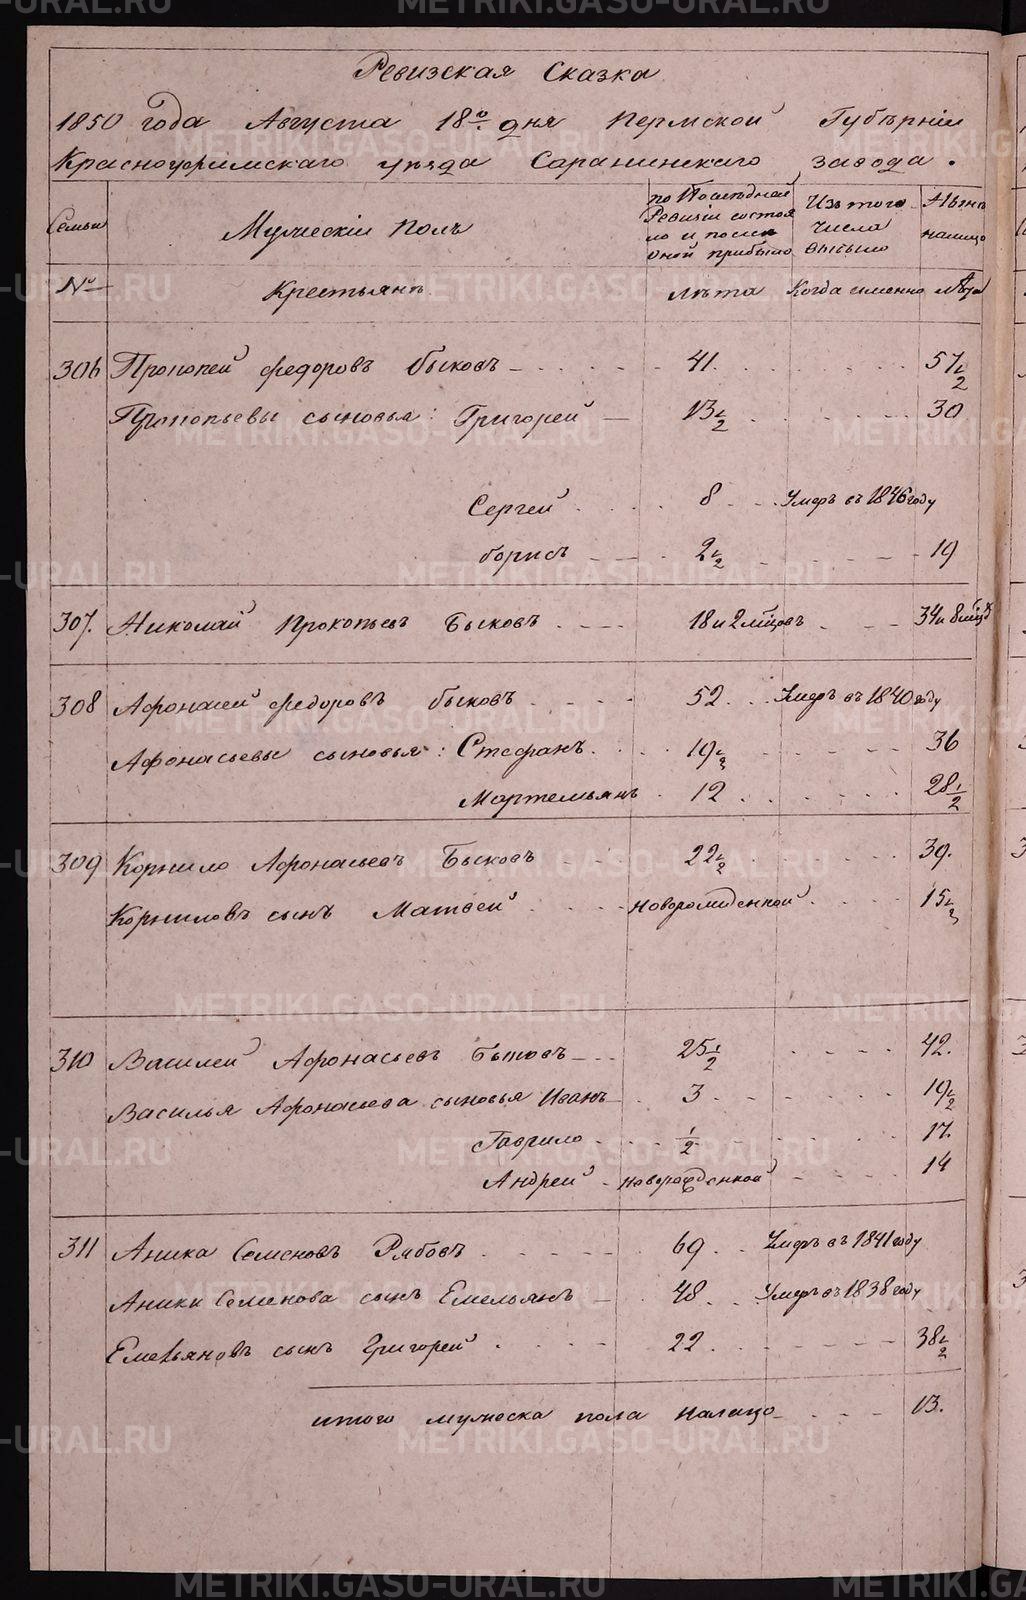 Ревизская Сказка
1850 года Августа 18го дня Пермской Губѣрніи
Красноуфимскаго уѣзда Саранинскаго завода.
Семьи
Мужескій Полъ
по Послѣдней Ревизіи состояло и после оной прибыло
Изъ того числа выбыло
Нынѣ налицо
№
Крестьянъ
Лѣта
Когда именно
Лѣта
306 Прокопей Федоровъ Быковъ 41. 57 1/2
Прокопьевы сыновья: Григорей 13 1/2 30
Сергей 8 Умеръ въ 1846 году
Борисъ 2 1/2 19
307. Николай Прокопьевъ Быковъ 18 и 2 мѣсцовъ 34 и 8 мѣсц
308 Афонасей Федоровъ Быковъ 52 Умеръ въ 1840 году
Афонасьевы сыновья: Стефанъ 19 1/2 36
Мартемьянъ 12 28 1/2
309 Корнило Афонасьевъ Быковъ 22 1/2 39.
Корниловъ сынъ Матвей новорожденной 15 1/2
310 Василей Афонасьевъ Быковъ 25 1/2 42.
Василья Афонасьева сыновья Иванъ 3 19 1/2
Гаврило 1/2 17.
Андрей новорожденной 14
311 Аника Семеновъ Рябовъ 69 Умеръ въ 1841 году
Аники Семенова сынъ Емельянъ 48 Умеръ въ 1838 году
Емельяновъ сынъ Григорей 22 38 1/2
итого мужеска пола налицо 13.
METRIKI.GASO-URAL.RU